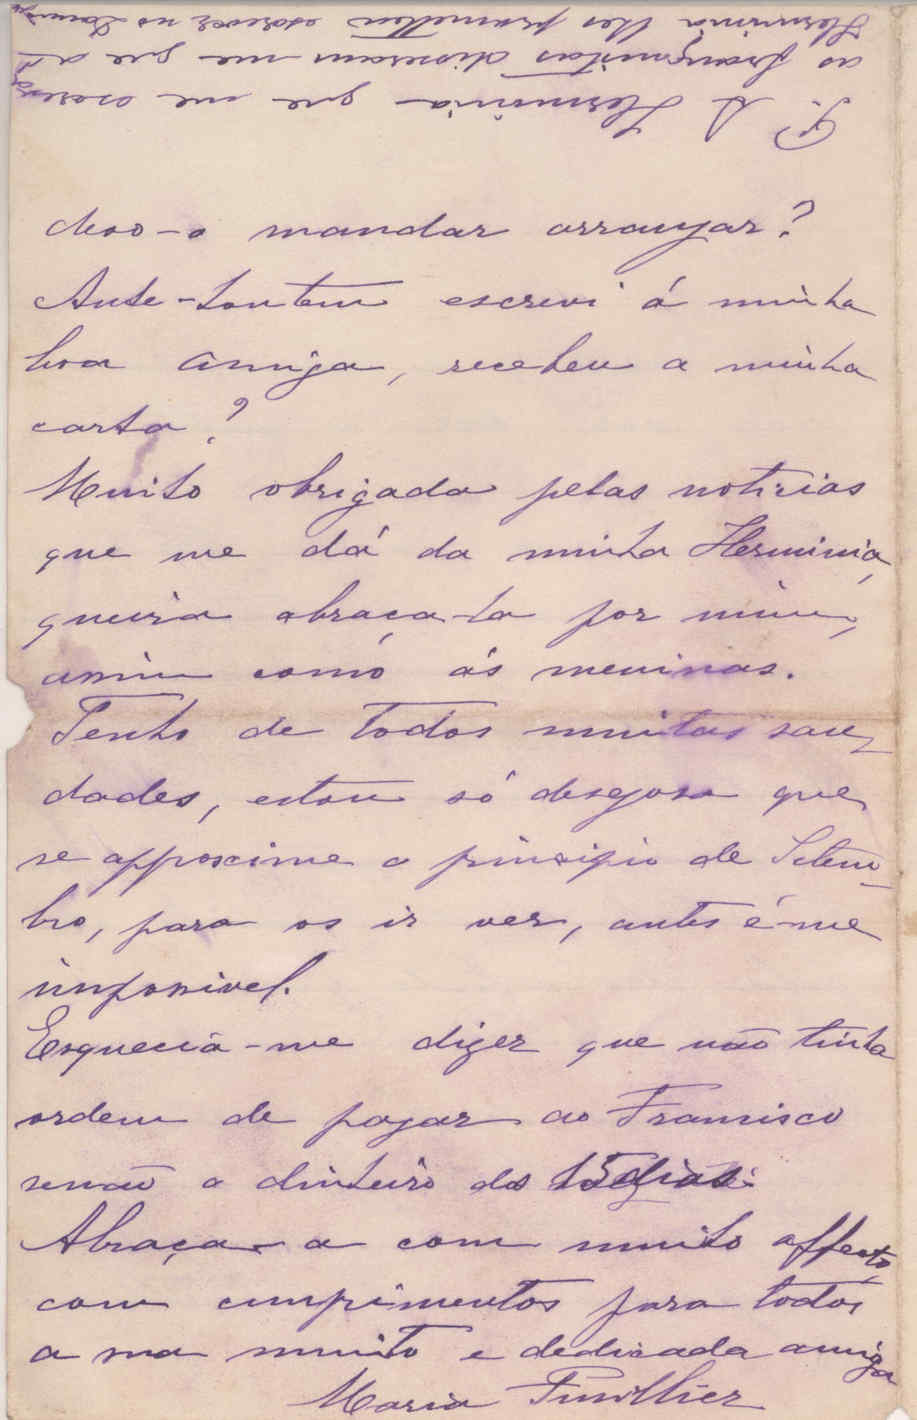 devo-o mandar arranjar?
Ante-hontem escrevi á minha
boa amiga, recebeu a minha
carta?
Muito obrigada pelas noticias
que me dá da minha Herminia,
queira abraça-la por mim,
assim como ás meninas.
Tenho de todos muitas sau-
dades, estou só desejosa que
se approxime o principio de Setem-
bro, para os ir ver, antes é-me
impossivel.
Esquecia-me dizer que não tinha
ordem de pagar ao Francisco
senão o dinheiro dos 15 dias.
Abraça-a com muito affecto,
com cumprimentos para todos
a sua muito e dedicada amiga
Maria
P. S. Herminia que me
as disseram me que a
Herminia lhes prometteu escrever no